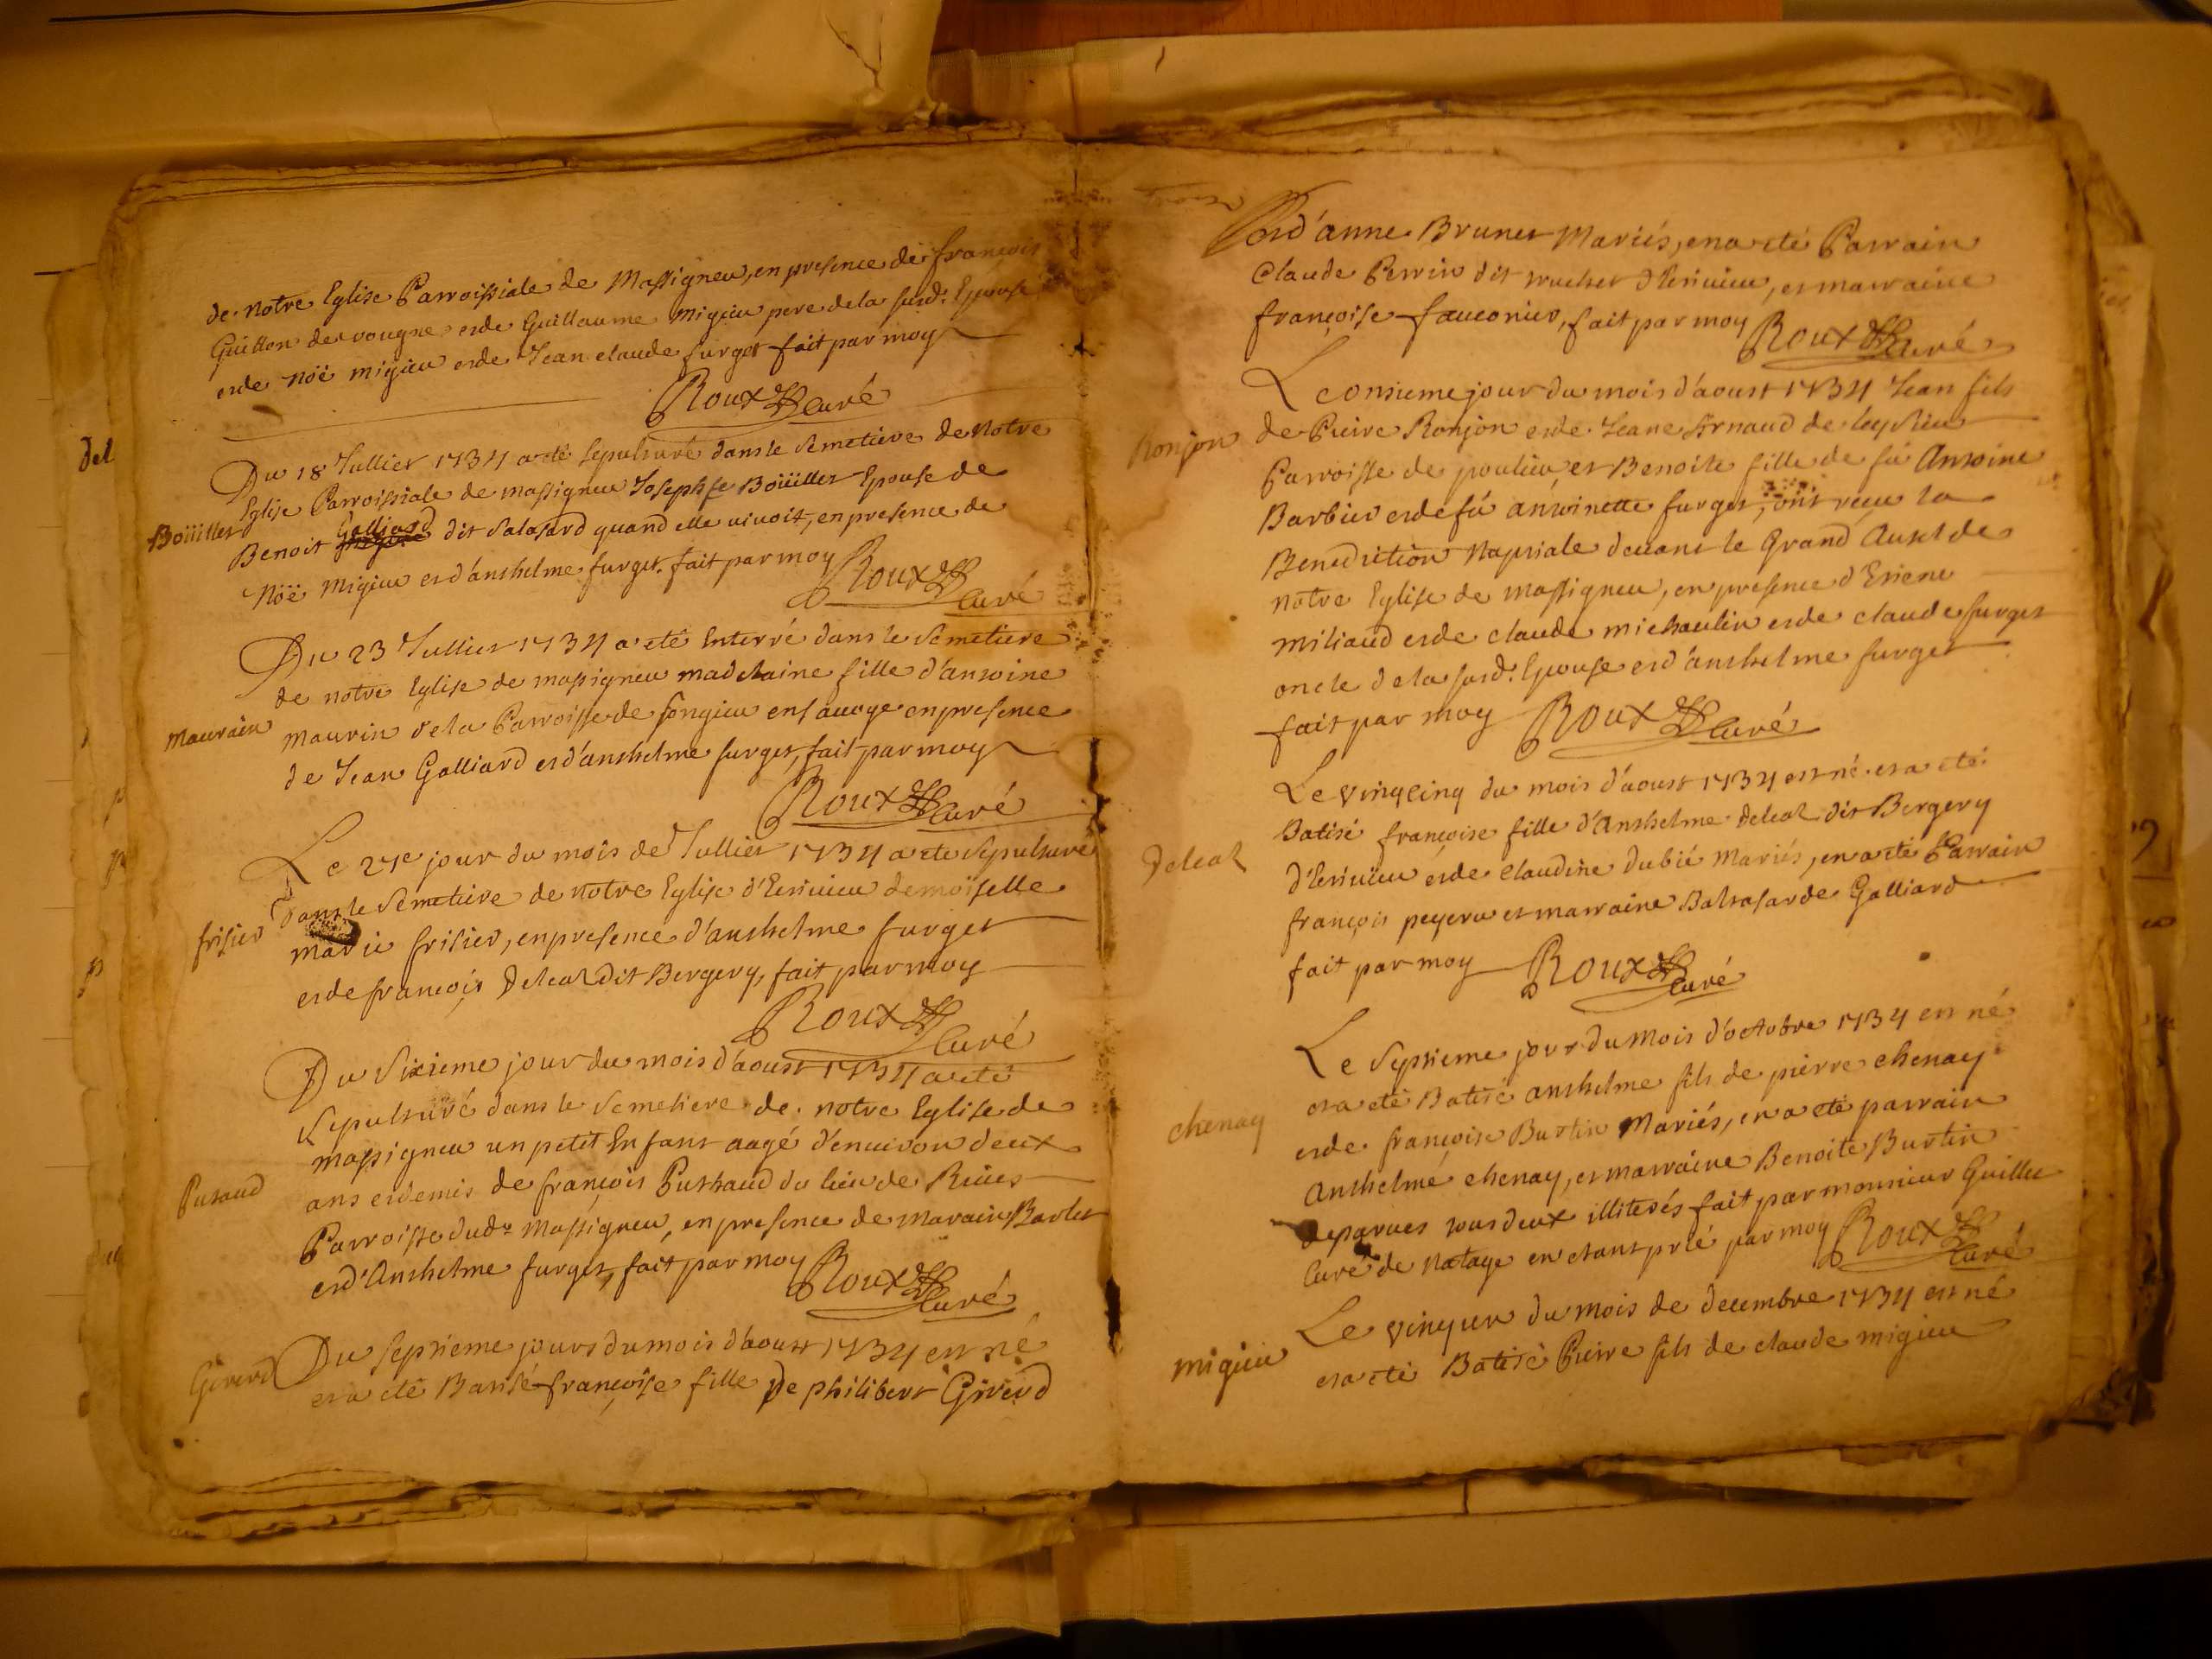 de notre Eglise Parroissiale de Massigneu, en presence de françois
Guitton de vougne et de Guillaume migieu pere de la susd. Epouse
et de Noë migieu et de Jean claude furget fait par moy
Roux Curé
Du 18 Jullies 1734 a été sepulturé dans le semetiere de Notre
Bouilles
Eglise Parroissiale de massigneu Josephte Boüilles Epouse de
Benoit Galliard dit Salasard quand elle vivoit, en presence de
Noë Migieu et d'anthelme furget. fait par moy Roux
Curé
Du 23 Jullies 1734 a eté Enterré dans le semetiere
de notre Eglise de massigneu madelaine fille d'antoine
maurain
maurin de la Parroisse de songieu en savoye en presence
de Jean Galliard et d'anthelme furget, fait par moy
Roux Curé
Le 27e jour du mois de Jullies 1734 a ete sepulturé
dans le semetiere de notre Eglise d'Erivieu demoiselle
frisier
marie frisier, en presence d'anthelme furget
et de francois Deleaz dit Bergery, fait par moy
Roux
Curé
Du sixieme jour du mois d'aoust 1734 a eté
sepulturé dans le semetiere de notre Eglise de
massigneu un petit Enfant aagé d'environ deux
Putaud
ans et demis de françois Puthaud du lieu de Rives
Parroisse dud. Massigneu, en presence de Marain Barlet
et d'Anthelme furget, fait par moy Roux
Curé
Girerd
Du septieme jours du mois d'aoust 1734 est né
et a eté Batisé françoise fille de philibert Girerd
et d'anne Brunet Mariés, en a eté Parrain
Claude Perrin dit truchet d'Erivieu, et marraine
françoise fauconier, fait par moy Roux Curé
Le onsieme jour du mois d'aoust 1734 Jean fils
Ronjon
de Pierre Ronjon et de Jeane Arnaud de leyrieu
Parroisse de poulieu, et Benoite fille de fû Antoine
Barbier et de fû antoinette furget, ont reçu la
Benediction Nupsiale devant le Grand Autel de
notre Eglise de massigneu, en presence d'Etiene
miliand et de claude michaulin et de claude furget
oncle de la susd. Epouse et d'anthelme furget
fait par moy Roux Curé
Le vingcinq du mois d'aoust 1734 est né et a eté
Batisé françoise fille d'Anthelme deleaz dit Bergery
Deleaz
d'Erivieu et de Claudine dubié Mariés, en a eté Parrain
françois peyeru et marraine Baltasarde Galliard
fait par moy Roux
Curé
Le septieme jour du Mois d'octobre 1734 est né
et a eté Batisé anthelme fils de pierre chenay
chenay
et de françoise Burtin Mariés, en a eté parrain
Anthelme chenay, et marraine Benoite Burtin
de parves tous deux illiterés fait par monsieur Guillet
Curé de Natage en etant prié par moy Roux
Curé
Le vingt un du mois de decembre 1734 est né
migieu
et a eté Batisé Pierre fils de claude migieu